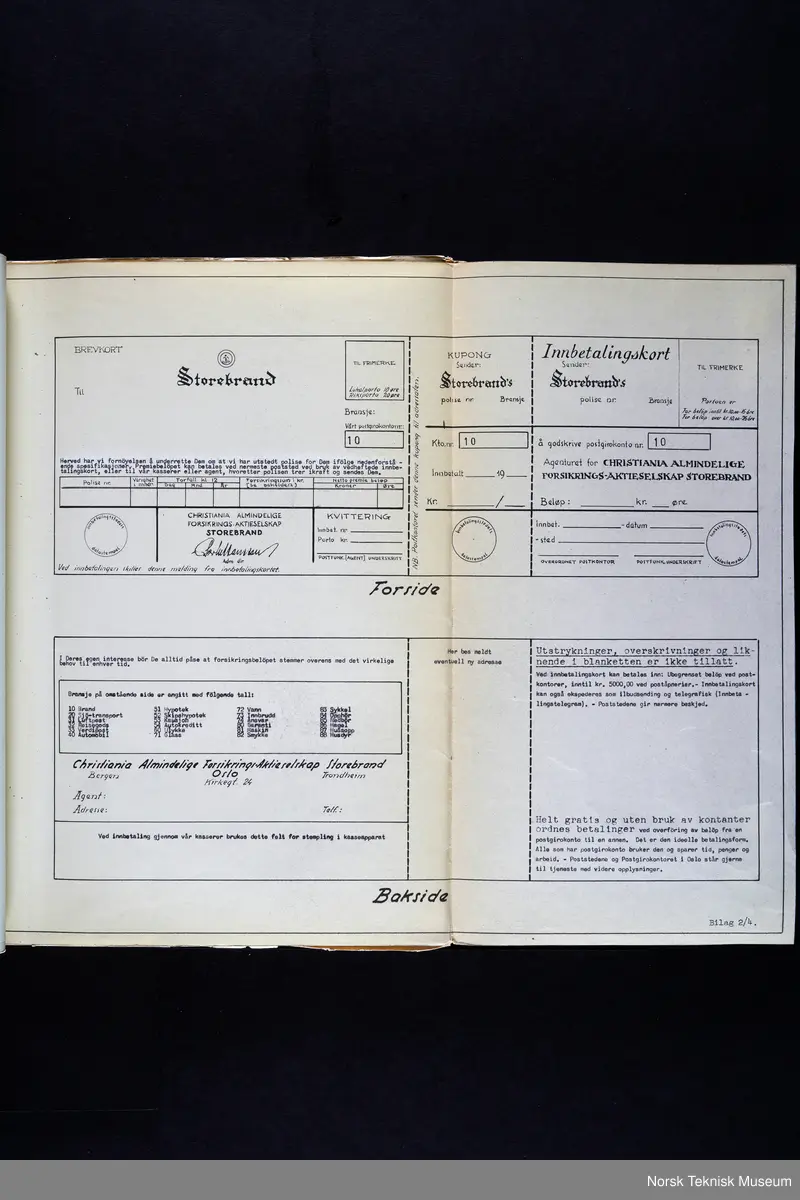 BREVKORT
Til
Storebrand
TIL FRIMERKE
Lokalporto 10 øre
Riksporto 20 øre
Bransje:
Vårt postgirokontonr:
10
Herved har vi fornöyelsen å underrette Dem om at vi har utstedt polise for Dem ifölge nedenforstå-
ende spesifikasjoner. Premiebelöpet kan betales ved nermeste poststed ved bruk av vedheftede innbe-
talingskort, eller til vår kasserer eller agent, hvoretter polisen trer ikraft og sendes Dem.
Polise nr.
Varighet i mndr.
Forfall kl 12
Dag Mnd. År
Forsikringssum i kr.
Netto premie beløp
Kroner Øre
Innbetalingsstedets
datostempel.
CHRISTIANIA ALMINDELIGE
FORSIKRINGS-AKTIESELSKAP
STOREBRAND
Adm. dir
KVITTERING
Innbet. nr
Porto kr.
POSTFUNK. (AGENT) UNDERSKRIFT
Ved innbetalingen skiller denne melding fra innbetalingskortet.
NB. Postkontoret sender denne kupong til adressaten.
KUPONG
Sender:
Storebrand's
polise nr Bransje
Kto.nr. 10
Innbetalt 19
Kr. /
Innbetalingsstedets
datostempel.
Innbetalingskort
Sender:
Storebrand's
polise nr. Bransje
TIL FRIMERKE
Portoen er
For beløp inntil kr.10.oo - 15 öre
For beløp over kr.10.oo - 25 öre
å godskrive postgirokonto nr. 10
Agenturet for CHRISTIANIA ALMINDELIGE
FORSIKRINGS-AKTIESELSKAP STOREBRAND
Beløp: kr. øre.
Innbet. -datum
-sted
OVERORDNET POSTKONTOR POSTFUNK. UNDERSKRIFT
Innbetalingsstedets
datostempel.
Forside
I Deres egen interesse bör De alltid påse at forsikringsbelöpet stemmer overens med det virkelige
behov til enhver tid.
Bransje på omstående side er angitt med fölgende tall:
10 Brand 51 Hypotek 72 Vann 83 Sykkel
20 Sjö-transport 52 Skipshypotek 73 Innbrudd
31 Luftpost
32 Reisegods 54 Autokreditt 80 Garanti 86 Hagel
33 Verdipost 60 Ulykke 81 Maskin 87 Hussopp
40 Automobil 71 Glass 82 Smykke 88 Husdyr
Christiania Almindelige Forsikrings-Aktieselskap Storebrand
Bergen Oslo Trondheim
Kirkegt. 24
Agent:
Adresse: Telf.:
Ved innbetaling gjennom vår kasserer brukes dette felt for stempling i kasseapparat
Her bes meldt
eventuell ny adresse
Utstrykninger, overskrivninger og lik-
nende i blanketten er ikke tillatt.
Ved innbetalingskort kan betales inn: Ubegrenset beløp ved post-
kontorer, inntil kr. 5000,00 ved poståpnerier.- Innbetalingskort
kan også ekspederes som ilbudsending og telegrafisk (Innbeta -
lingstelegram). - Poststedene gir nermere beskjed.
Helt gratis og uten bruk av kontanter
ordnes betalinger ved overföring av belöp fra en
postgirokonto til en annen. Det er den ideelle betalingsform.
Alle som har postgirokonto bruker den og sparer tid, penger og
arbeid. - Poststedene og Postgirokontoret i Oslo står gjerne
til tjeneste med videre opplysninger.
Bakside
Bilag 2/4.
Norsk Teknisk Museum